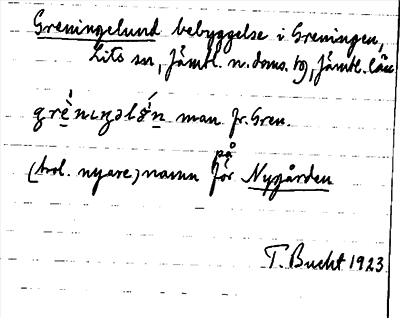 Greningelund bebyggelse i Greningen,
Lits sn, Jämtl. n. doms. tg, Jämtl. län
man fr. Gren.
på
(trol. nyare) namn för Nygården
T. Bucht 1923